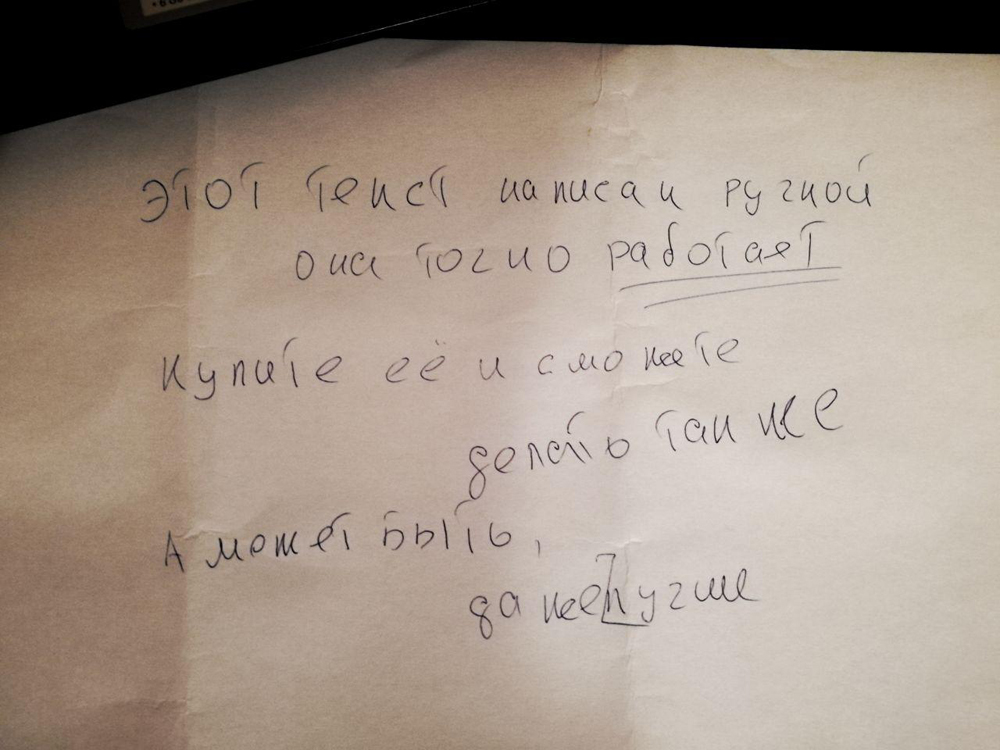 Этот текст написан ручкой
она точно работает
Купите её и сможете
делать так же
А может быть,
даже лучше